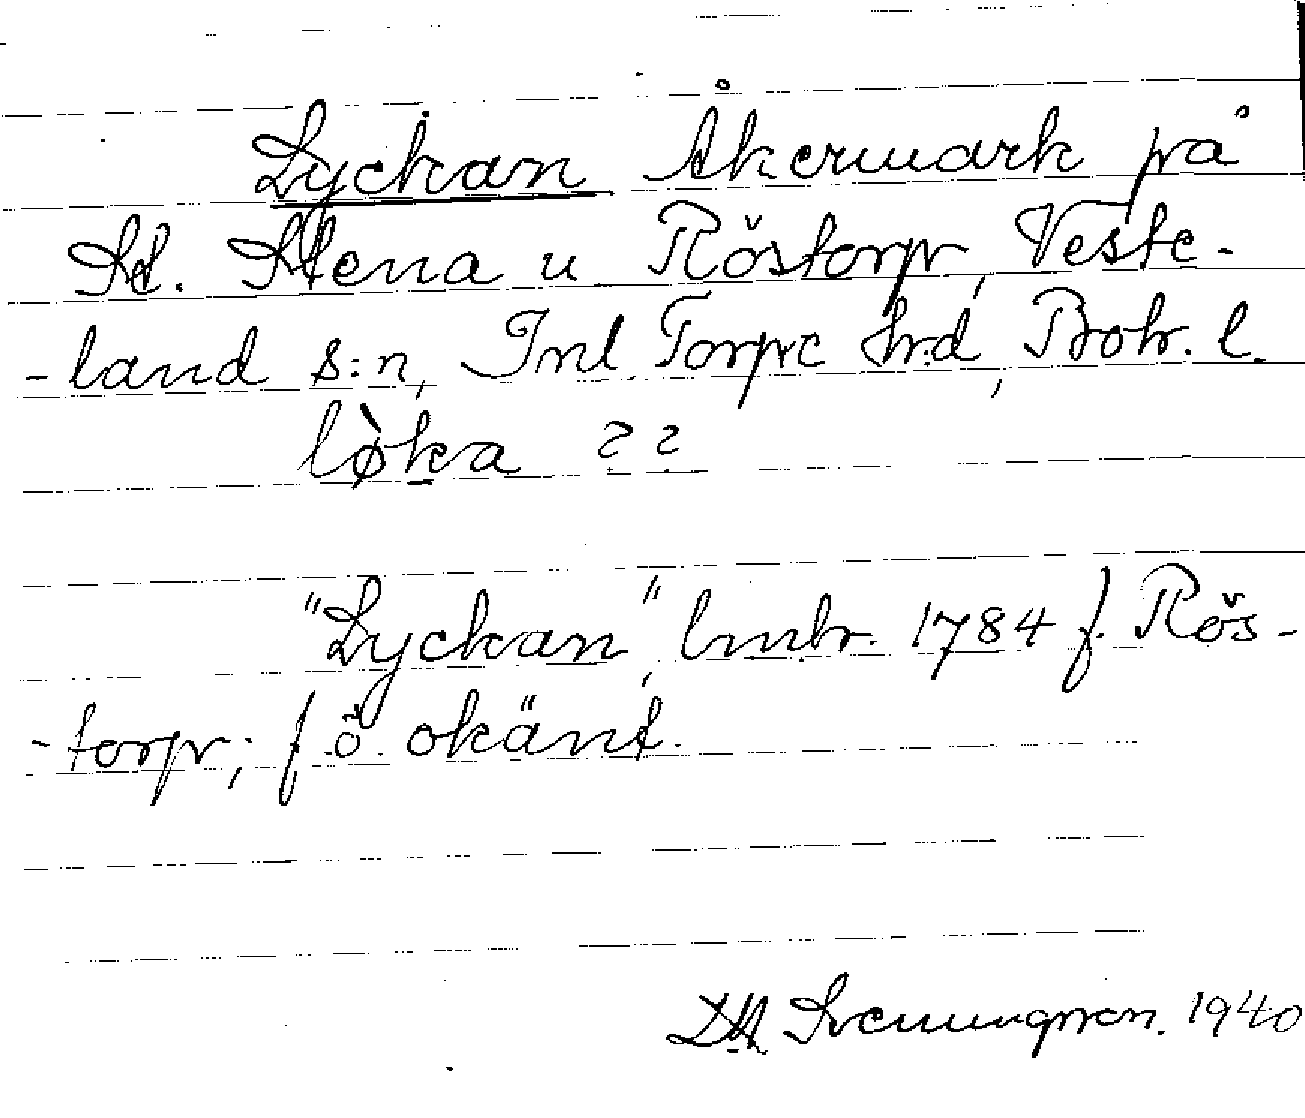 Lyckan Åkermark på
St. Stena u Röstorp, Veste-
-land s:n, Inl. Torpe hrd, Boh. l.
lø̀ka ??
"Lyckan", lmbr. 1784 f. Rös-
-torp; f. ö. okänt.
Svenungsson. 1940